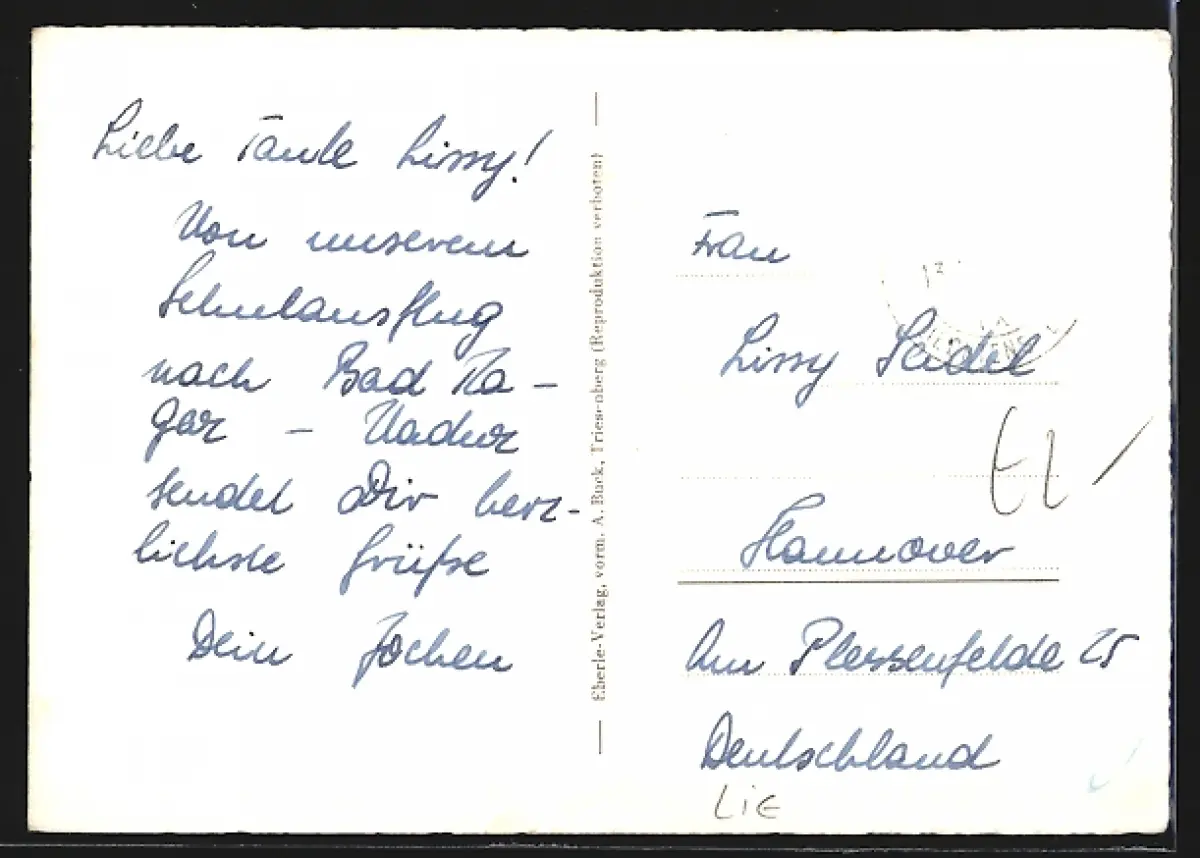 Liebe Tante Lissy!
Von unserem
Schulausflug
nach Bad Ra-
gaz - Vaduz
sendet Dir herz-
lichste Grüße
Dein Jochen
Eberle-Verlag, vorm. A. Buck, Triesenberg (Reproduktion verboten)
Frau
Lissy Seidel
Hannover
Am Plessenfelde 25
Deutschland
LiE